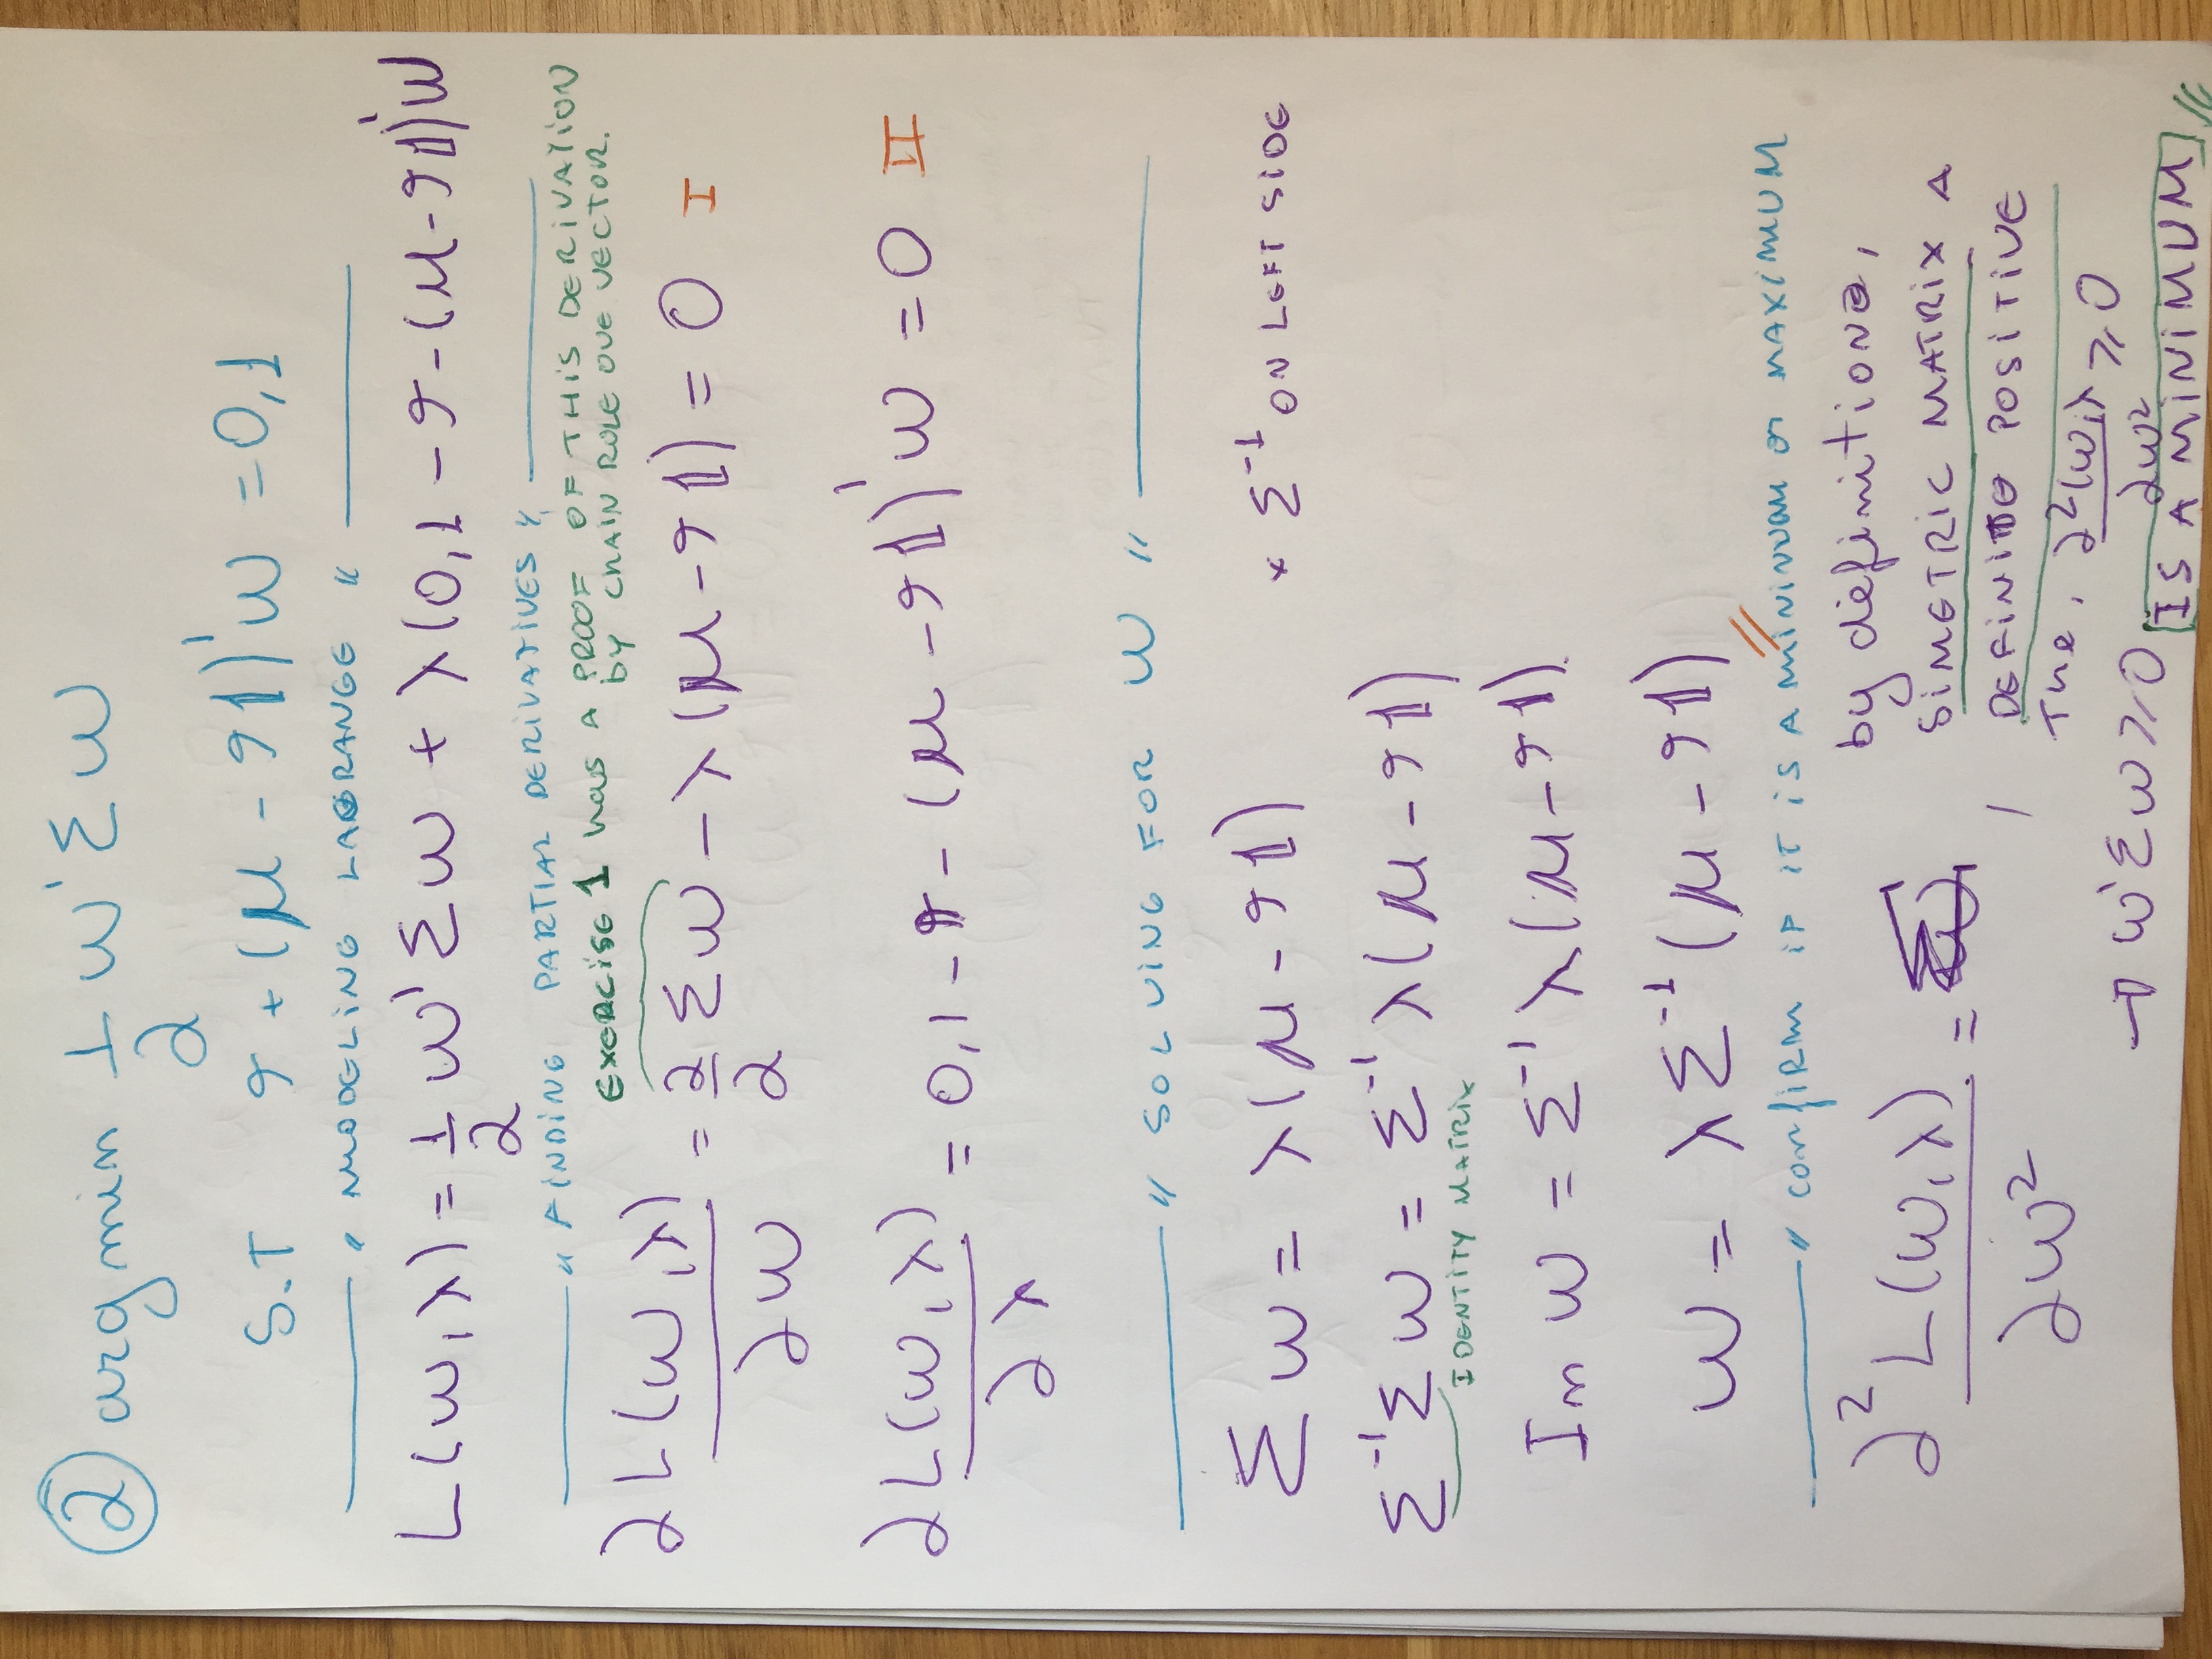 ② arg min 1/2 w'Σw
S.T r + (μ - r𝟙)'w = 0,1
" MODELING LAGRANGE "
L(w,λ) = 1/2 w'Σw + λ(0,1 - r - (μ - r𝟙)'w
" FINDING PARTIAL DERIVATIVES "
EXERCISE 1 has A PROOF OF THIS DERIVATION
by CHAIN ROLE OUE VECTOR.
∂L(w,λ)/∂w = 2/2 Σw - λ(μ - r𝟙) = 0 I
∂L(w,λ)/∂λ = 0,1 - r - (μ - r𝟙)'w = 0 II
" SOLVING FOR W "
Σw = λ(μ - r𝟙) × Σ⁻¹ ON LEFT SIDE
Σ⁻¹Σw = Σ⁻¹λ(μ - r𝟙)
IDENTITY MATRIX
In w = Σ⁻¹λ(μ - r𝟙)
w = λΣ⁻¹(μ - r𝟙) //
" CONFIRM IF IT IS A MINIMUM or MAXIMUM
∂²L(w,λ)/∂w² = Σ, by definition,
SIMETRIC MATRIX A
DEFINITE POSITIVE
The, ∂²(w,λ/∂w² ⩾ 0
→ w'Σw ⩾ 0
IS A MINIMUM //